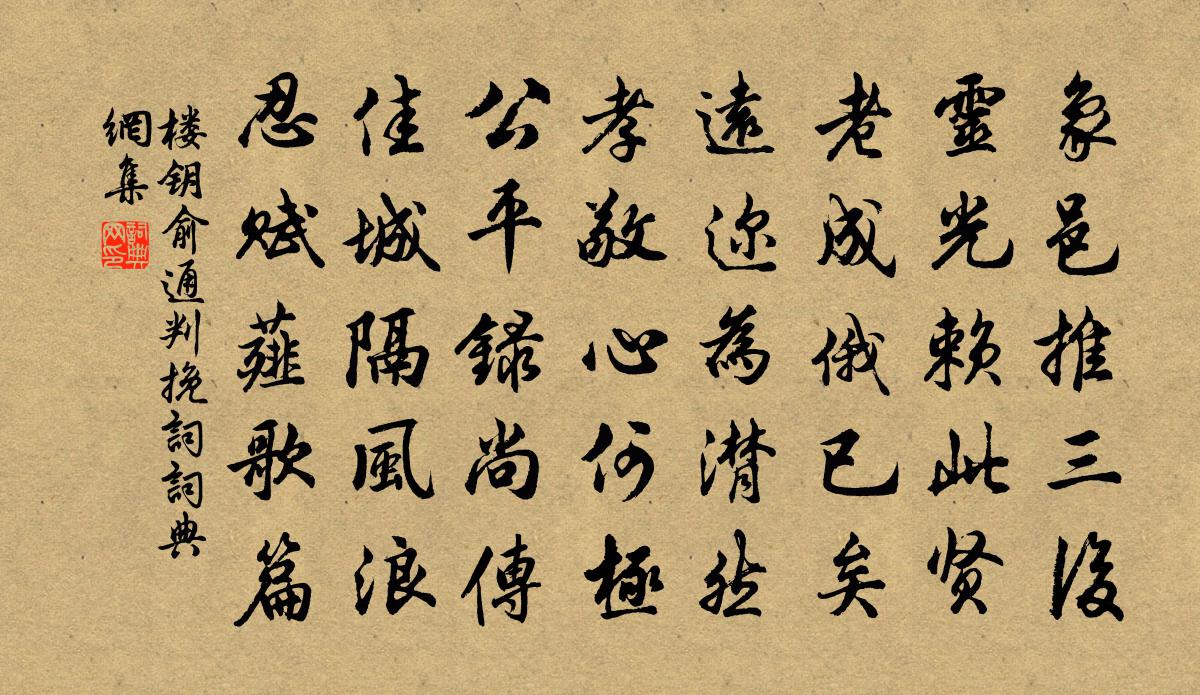 象邑推三後
靈光赖此贤
老成俄已矣
遠迩為潸然
孝敬心何極
公平録尚傳
佳城隔風浪
忍赋薤歌篇
楼钥俞通判挽詞詞典
網集
詞典
网印